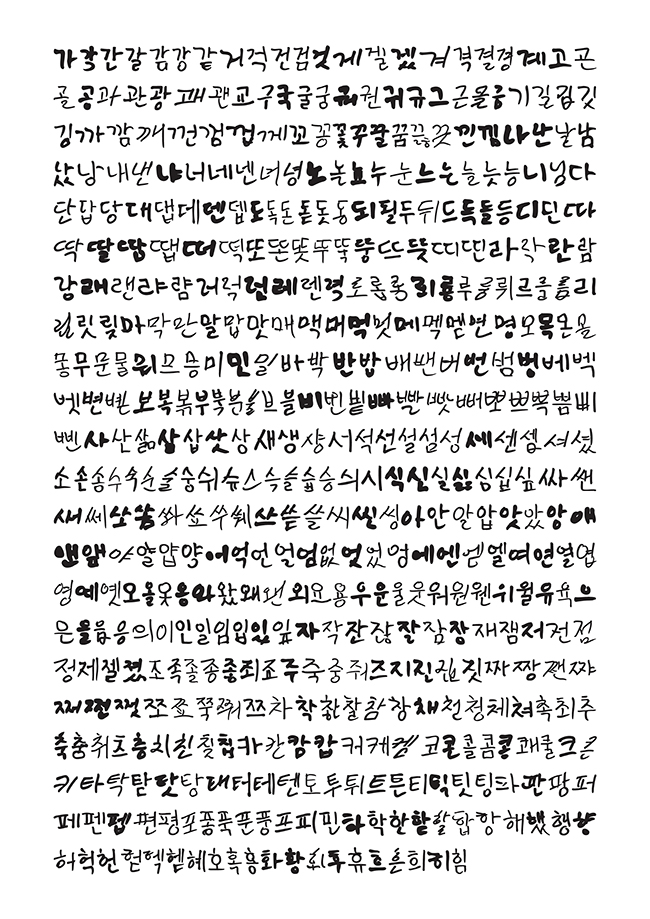 가각간갈감강같거걱건검것게겔겠겨격결경계고곤
골공과관광괘괜교구국굴궁궈권귀규그근을긍기길김깃
깅까깜깨껀껌껍께꼬꽁꽃꾸꿀꿈끓끗낀낌나난날남
났낭내낸냐너네넨녀념노논뇨누눈느는늘늦능니님다
단답당대댑데덴뎁도독돈돋돗동되될두뒤드득들등디딘따
딱딸땀땝떠떡또똔똣뚜뚝뚱뜨뜻띠띤라락란람
랑래랜랴럄러럭런레렌력로롭롱리룡루룽뤼르를름리
릴릿릊마막만말맙맛매맥머먹멋메멕멘면명모목몬몰
몽무문물뭐므믕미민밀바박반밥배밴버번범벙베벡
벳변볘보복볶부북분불브블비빈빝빠빨빴빼뻐뽀쁘쁙쁨삐
삔사산삶살삽삿상새생샹서석선설섬성세센셈셔셨
소손송수숙순술숭쉬슈스슥슬습승의시식신실싫심십싶싸쌘
써쎄쏘쏨쏴쑈쑤쒜쓰쓷쓸씨씰씽아안알압앗았앙애
앤앞야얄얍양어억언얼엄없엇었엉에엔엠엘여연열엽
영예옛오올옷옹와왔왜왠외요용우운울웃워원웬위윌유육으
은을음응의이인일임입있잎자작잔잖잘잠장재잼저전점
정제젤젔조족졸종좋죄죠주죽중쥐즈지진집짓짜짱짼쨔
째쩐쩟쪼쬬쭉쮜쯔차착찮찰참창채천청체쳐촉최추
축춤취츠층치친칮칩카칸캄캅커케켄코콘콜콤콩쾌쿨크큰
키타탁탄탓탕태터테텐토투튀트튼티틱팃팅파판팡퍼
페펜펩편평포퐁푹푼풍프피민하학한핥할합항해했행향
허헉헌헏헥헬혜호혹흥화황회두휴흐흔희히힘